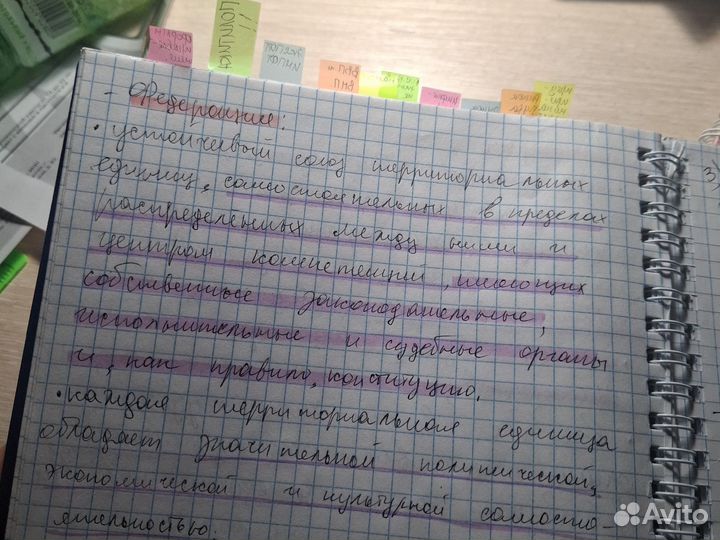 - Федерация:
• устойчивый союз территориальных
единиц, самостоятельных в пределах
распределенных между ними и
центром компетенций, имеющих
собственные законодательные,
исполнительные и судебные органы
и, как правило, конституцию.
• каждая территориальная единица
обладает значительной политической,
экономической и культурной самосто-
ятельностью.
3)
Avito